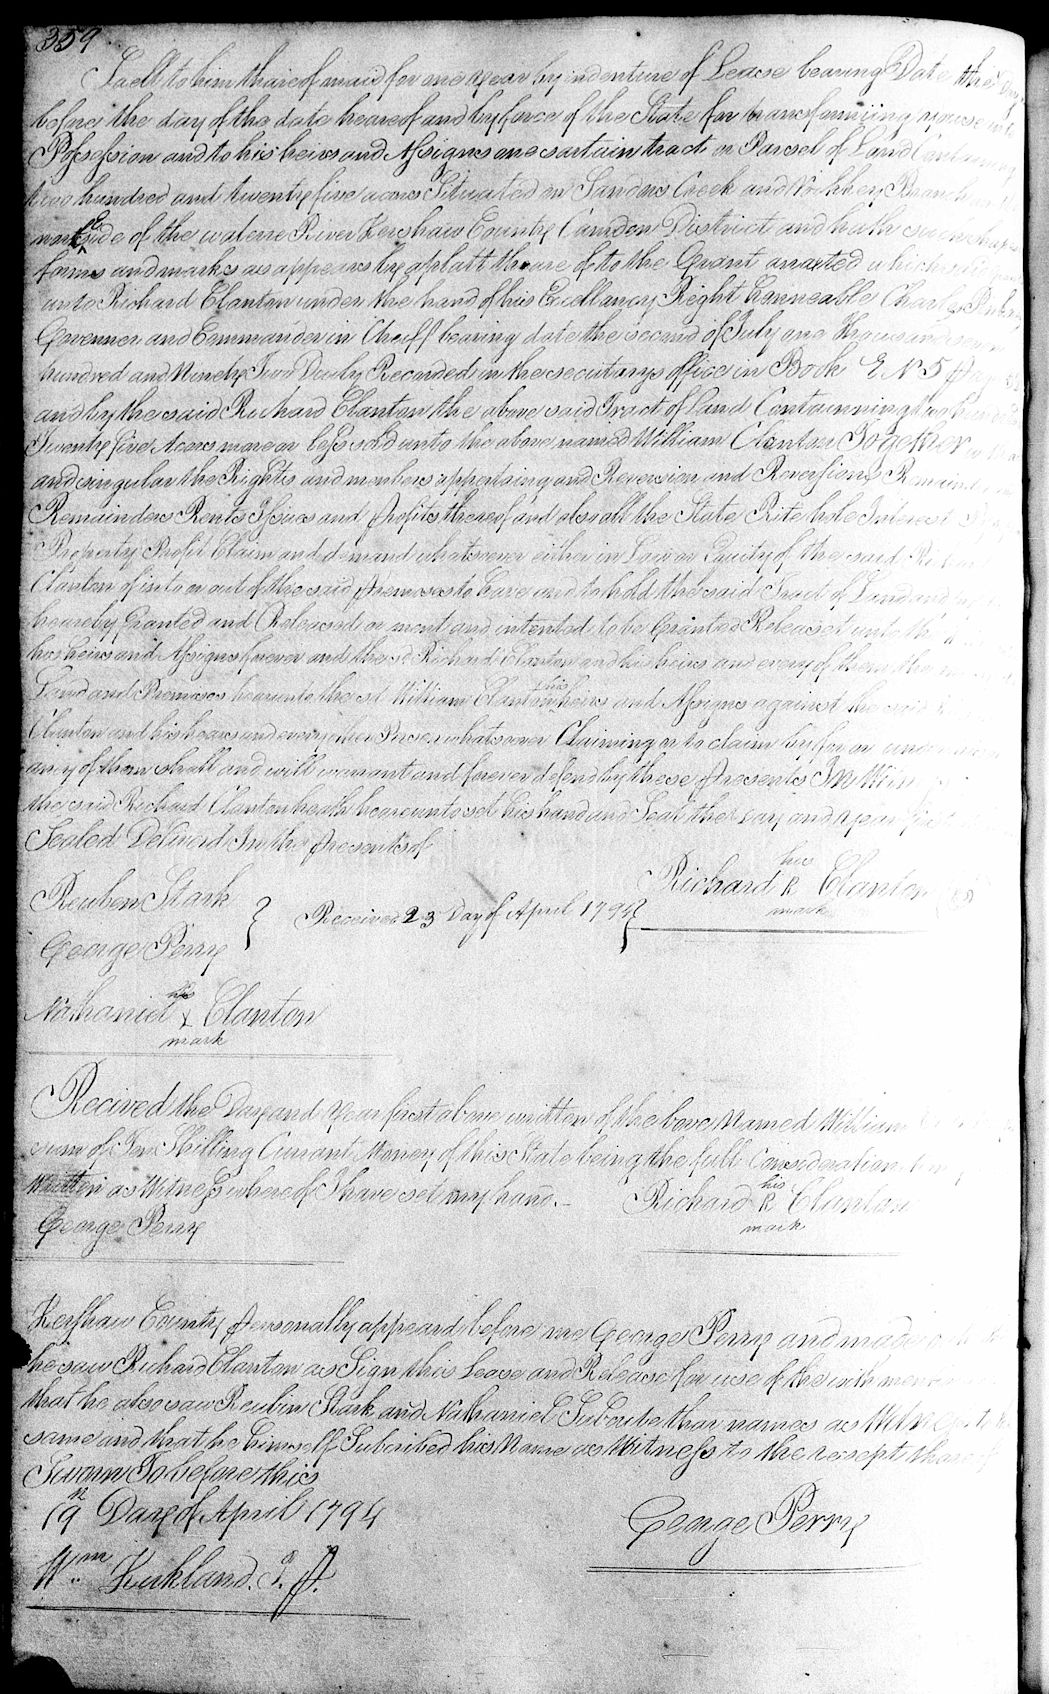 359
Saell to him thaireof maid for one year by indenture of Lease bearing Date the day
before the day of the date heareof and by force of the State for transferring uses into
Possession and to his heirs and Assigns one sartain tract or Parsel of Land Containing
two hundred and twenty five acers Situated on Sanders Creek and Branch
north E side of the wateree River Kershaw County Camden District and hath such shape
forms and marks as appears by a platt theare of to the Grant anaxted which
unto Richard Clanton under the hand of his Excellancy Right honneable Charles Pinkney
Govenner and Commander in Chieff bearing date the second of July one thousand seven
hundred and Ninety Two Deuly Recorded in the secutarys office in Book E No 5 Page
and by the said Richard Clanton the above said Tract of land Containning two hundred
Twenty five Acers more or less sold unto the above named William Clanton Together
and singular the Rights and members appertaing and Reversion and Reversions Remainder
Remainders Rents Issues and profits thereof and also all the State Rite title Interest
Property Profit Claim and demand whatsoever either in Law or Equity of the said Richard
Clanton of in to or out of the said premases to have and to hold the said Tract of Land and
heareby Granted and Released or ment and intented to be Granted Releaset unto the
his heirs and Assigns forever and the sd Richard Clanton and his heirs and every of them the
Land and Premases heareunto the sd William Clanton his heirs and Assigns against the said
Clanton and his hears and every other Person whatsoever Claiming or to claim by for or under
any of them shall and will warrant and forever defend by these presents In Witness
the said Richard Clanton heath heareunto set his hand and Seal the day and year first
Sealed Deliverd In the presents of
Richard his R mark Clanton
Reuben Stark
George Perry
Received 23 Day of April 1794
Nathaniel his X mark Clanton
Recived the Day and Year first above written of the bove Named William
sum of Ten Shilling Currant Money of this State being the full Consideration
Written as Witness whereof I have set my hand.
Richard his R mark Clanton
George Perry
Kershaw County personally appeard before me George Perry and made
he saw Richard Clanton as Sign this Lease and Release for use of the with
that he also saw Reubin Stark and Nathaniel Subcribe thar names as Witnesses to the
same and that he himself Subcribed his Name as Witness to the recept thare
Sworn To before this
19th Day of April 1794
George Perry
Wm Kirkland. J. P.